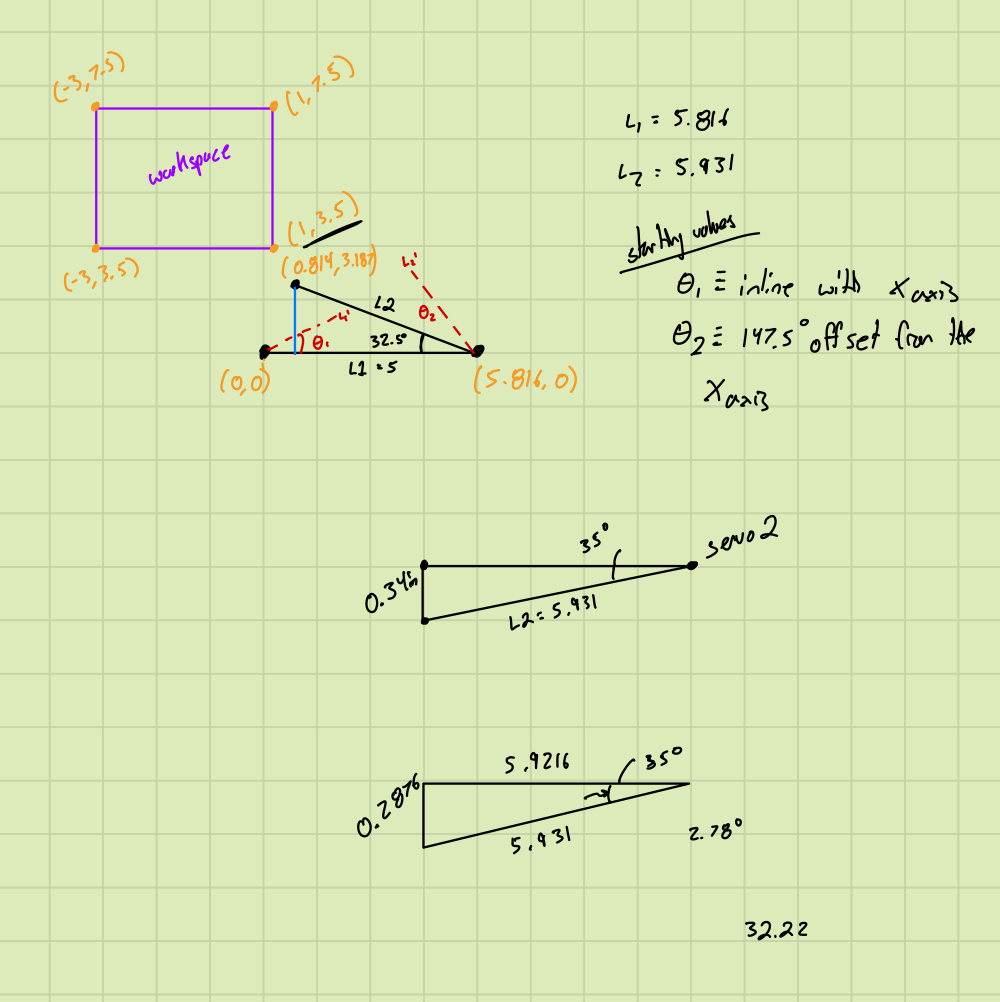 (-3, 7.5)
(1, 7.5)
workspace
(-3, 3.5)
(1, 3.5)
(0.814, 3.187)
L2'
L2
L1'
θ2
θ1
32.5°
L1 = 5
(0,0)
(5.816, 0)
L1 = 5.816
L2 = 5.931
starting values
θ1 ≡ inline with Xaxis
θ2 ≡ 147.5° offset from the
Xaxis
35°
servo 2
0.34in
L2 = 5.931
5.9216
35°
0.2876
5.931
2.78°
32.22